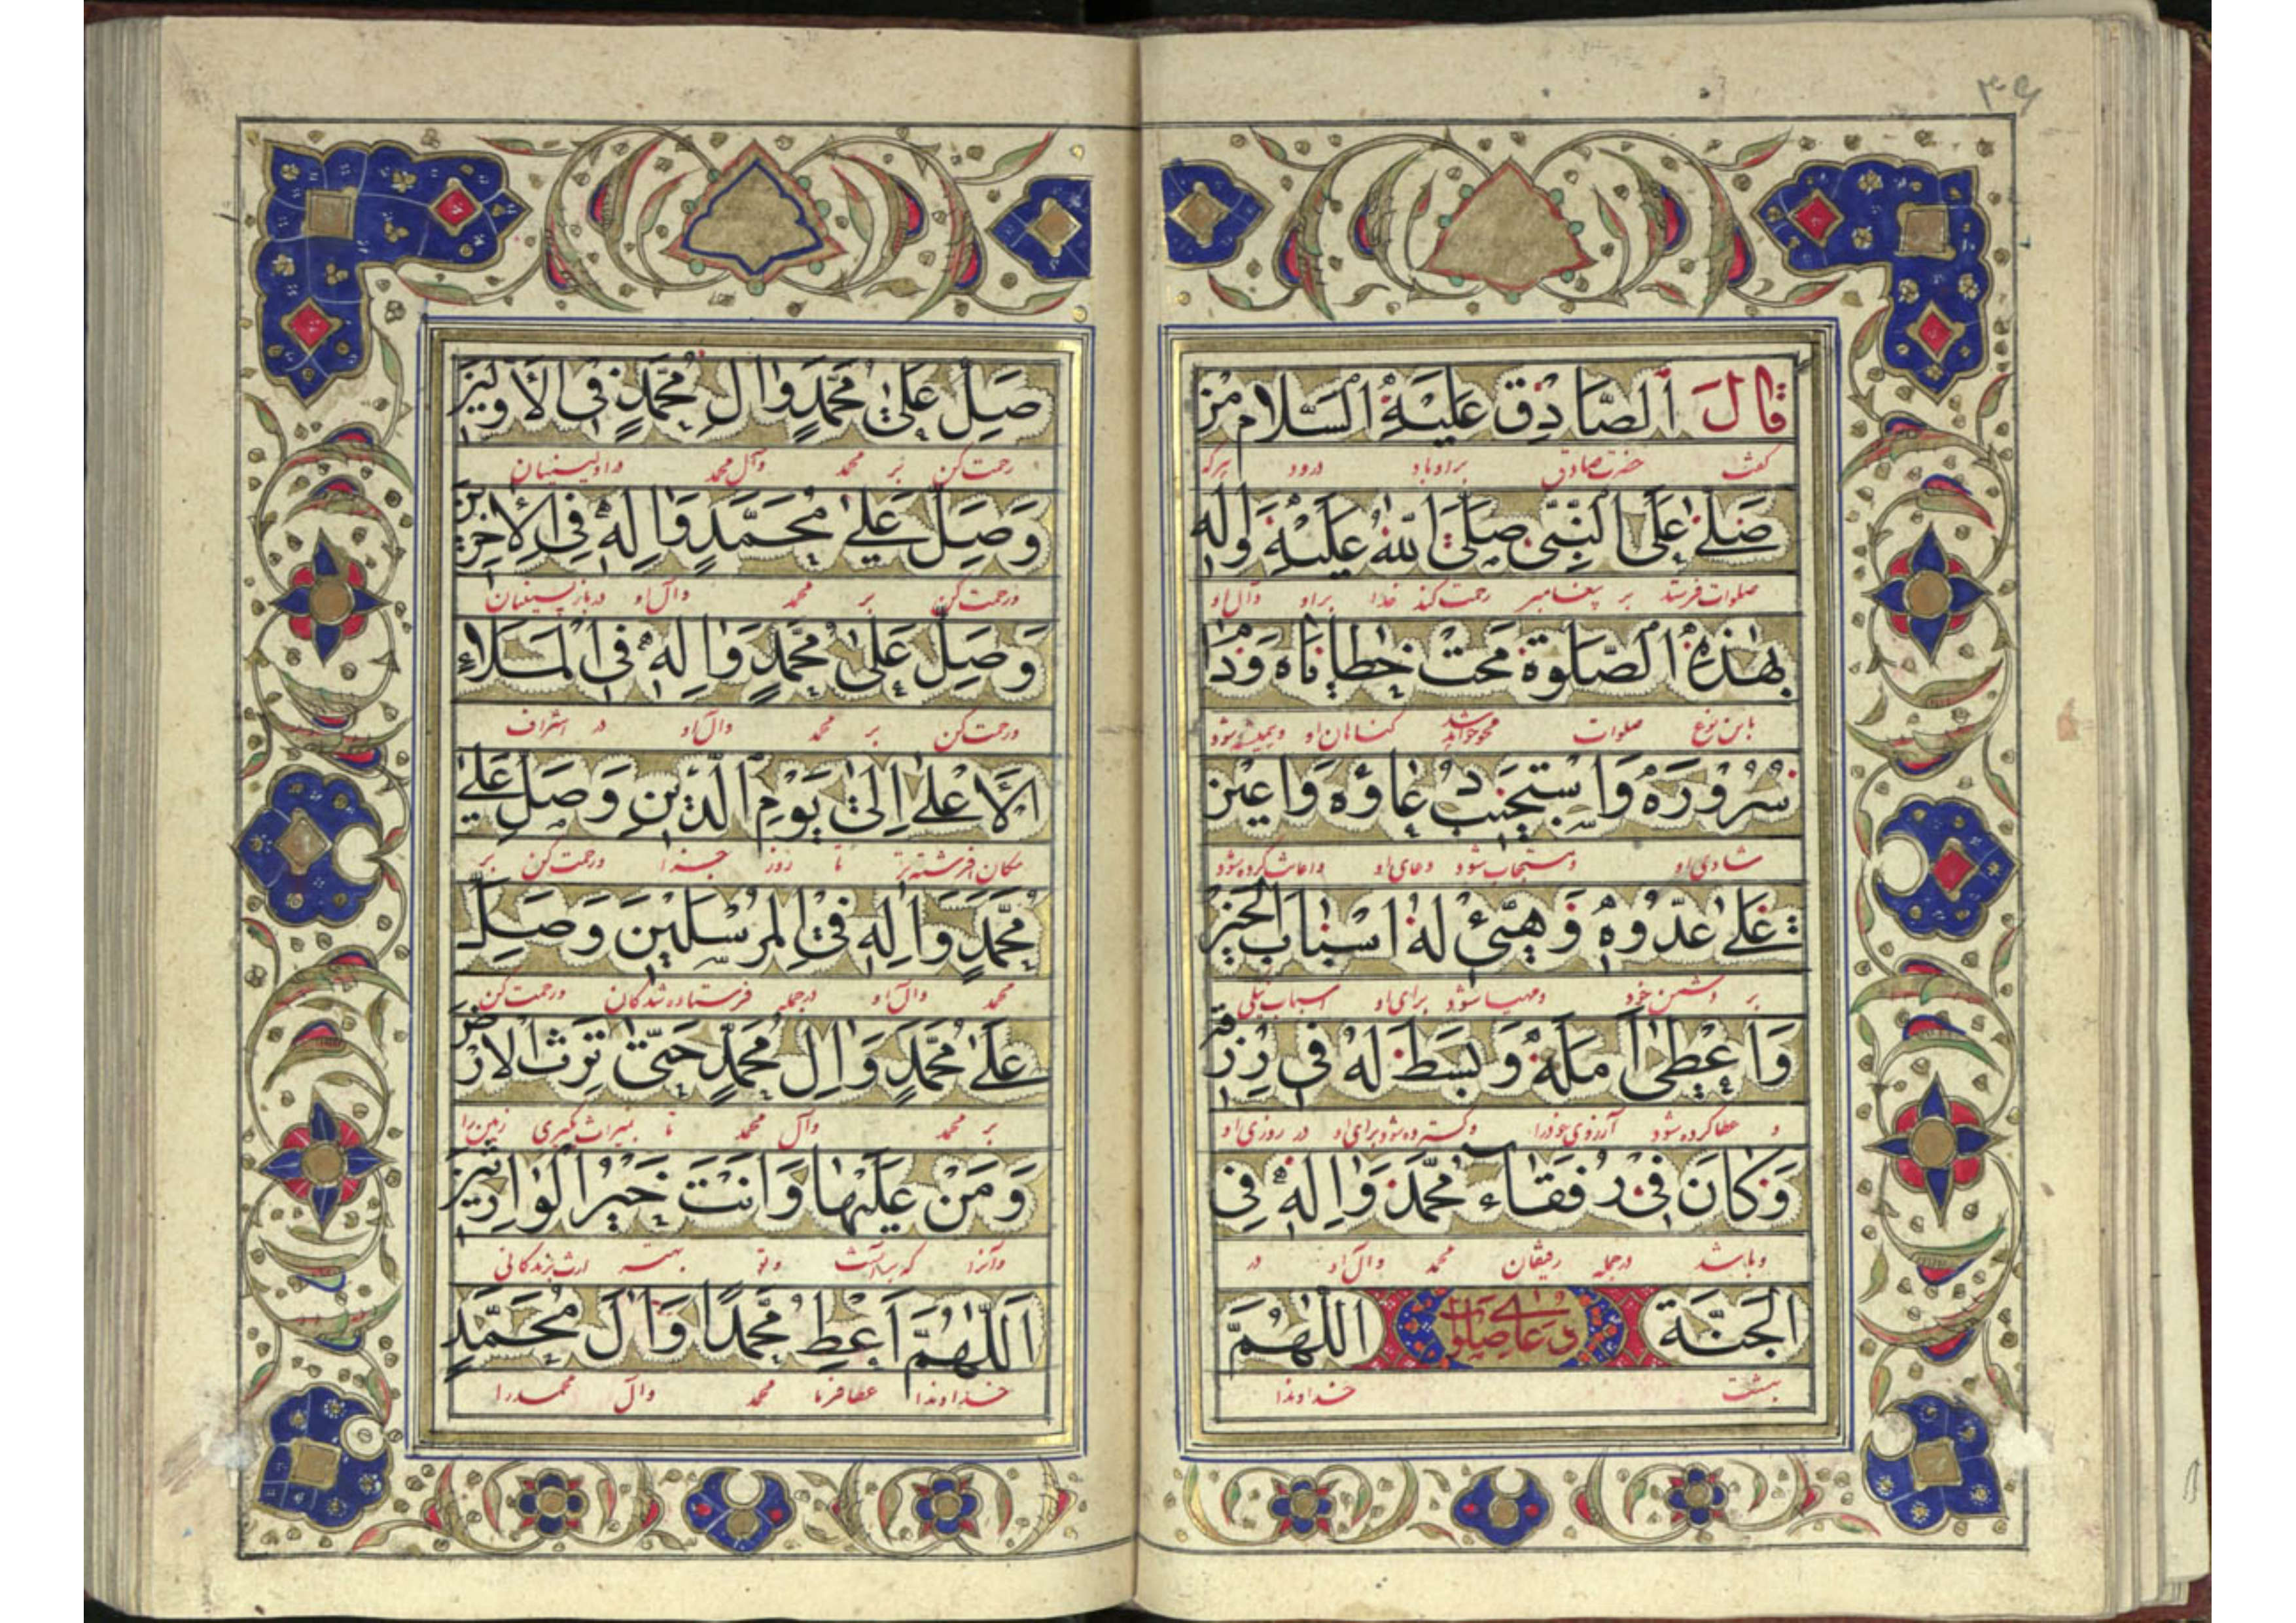 ۳۹
قالَ الصّادِق عَلَيْهِ السَّلام مَن
كفت حضرت صادق بر او باد درود هر كه
صَلّىٰ عَلَى النَّبِىّ صَلَّى اللهُ عَلَيْهِ وَاٰلِه
صلوات فرستد بر پیغامبر رحمت كند خدا بر او وآل او
بِهٰذِهِ الصَّلوةِ مُحِتْ خَطاياهُ وَدامَ
باين نوع صلوات محو خواهد شد كناهان او وهميشه شود
سُرُورُهُ وَاسْتُجيبَ دُعاؤُهُ وَاُعينَ
شادى او ومستجاب شود دعاى او واعانت كرده شود
عَلىٰ عَدُوِّهِ وَهُيِّئَ لَهُ اَسْبابَ الخَيْرِ
بر دشمن خود ومهيا شود براى او اسباب نيكى
وَاُعْطِىَ اَمَلَهُ وَبُسِطَ لَهُ فى رِزْقِهِ
و عطا كرده شود آرزوى خود را وكسترده شود براى او در روزى او
وَكانَ فى رُفَقاءِ مُحَمَّدٍ وَاٰلِهِ فِى
وباشد در جمله رفيقان محمد وآل او در
الجَنَّة دعاى صلوات اَللّٰهُمَّ
بهشت خداوندا
صَلِّ عَلىٰ مُحَمَّدٍ وَاٰلِ مُحَمَّدٍ فِى الاَوَّلينَ
رحمت كن بر محمد وآل محمد در اولينيان
وَصَلِّ عَلىٰ مُحَمَّدٍ وَاٰلِهِ فِى الاٰخِرينَ
ورحمت كن بر محمد وآل او در بازپسينيان
وَصَلِّ عَلىٰ مُحَمَّدٍ وَاٰلِهِ فِى الْمَلَاءِ
ورحمت كن بر محمد وآل او در اشراف
الاَعْلىٰ اِلىٰ يَوْمِ الدّينِ وَصَلِّ عَلىٰ
مكان تا روز جزا ورحمت كن بر
مُحَمَّدٍ وَاٰلِهِ فِى الْمُرْسَلينَ وَصَلِّ
محمد وآل او در جمله فرستاده شدكان ورحمت كن
عَلىٰ مُحَمَّدٍ وَاٰلِ مُحَمَّدٍ حَتّىٰ تَرِثَ الاَرْضَ
بر محمد وآل محمد تا بميراث كيرى زمين را
وَمَنْ عَلَيْها وَاَنْتَ خَيْرُ الْوارِثينَ
وآنرا كه بر آنست وتو بهتر
اَللّٰهُمَّ اَعْطِ مُحَمَّدًا وَاٰلَ مُحَمَّدٍ
خداوندا عطا فرما محمد وآل محمد را